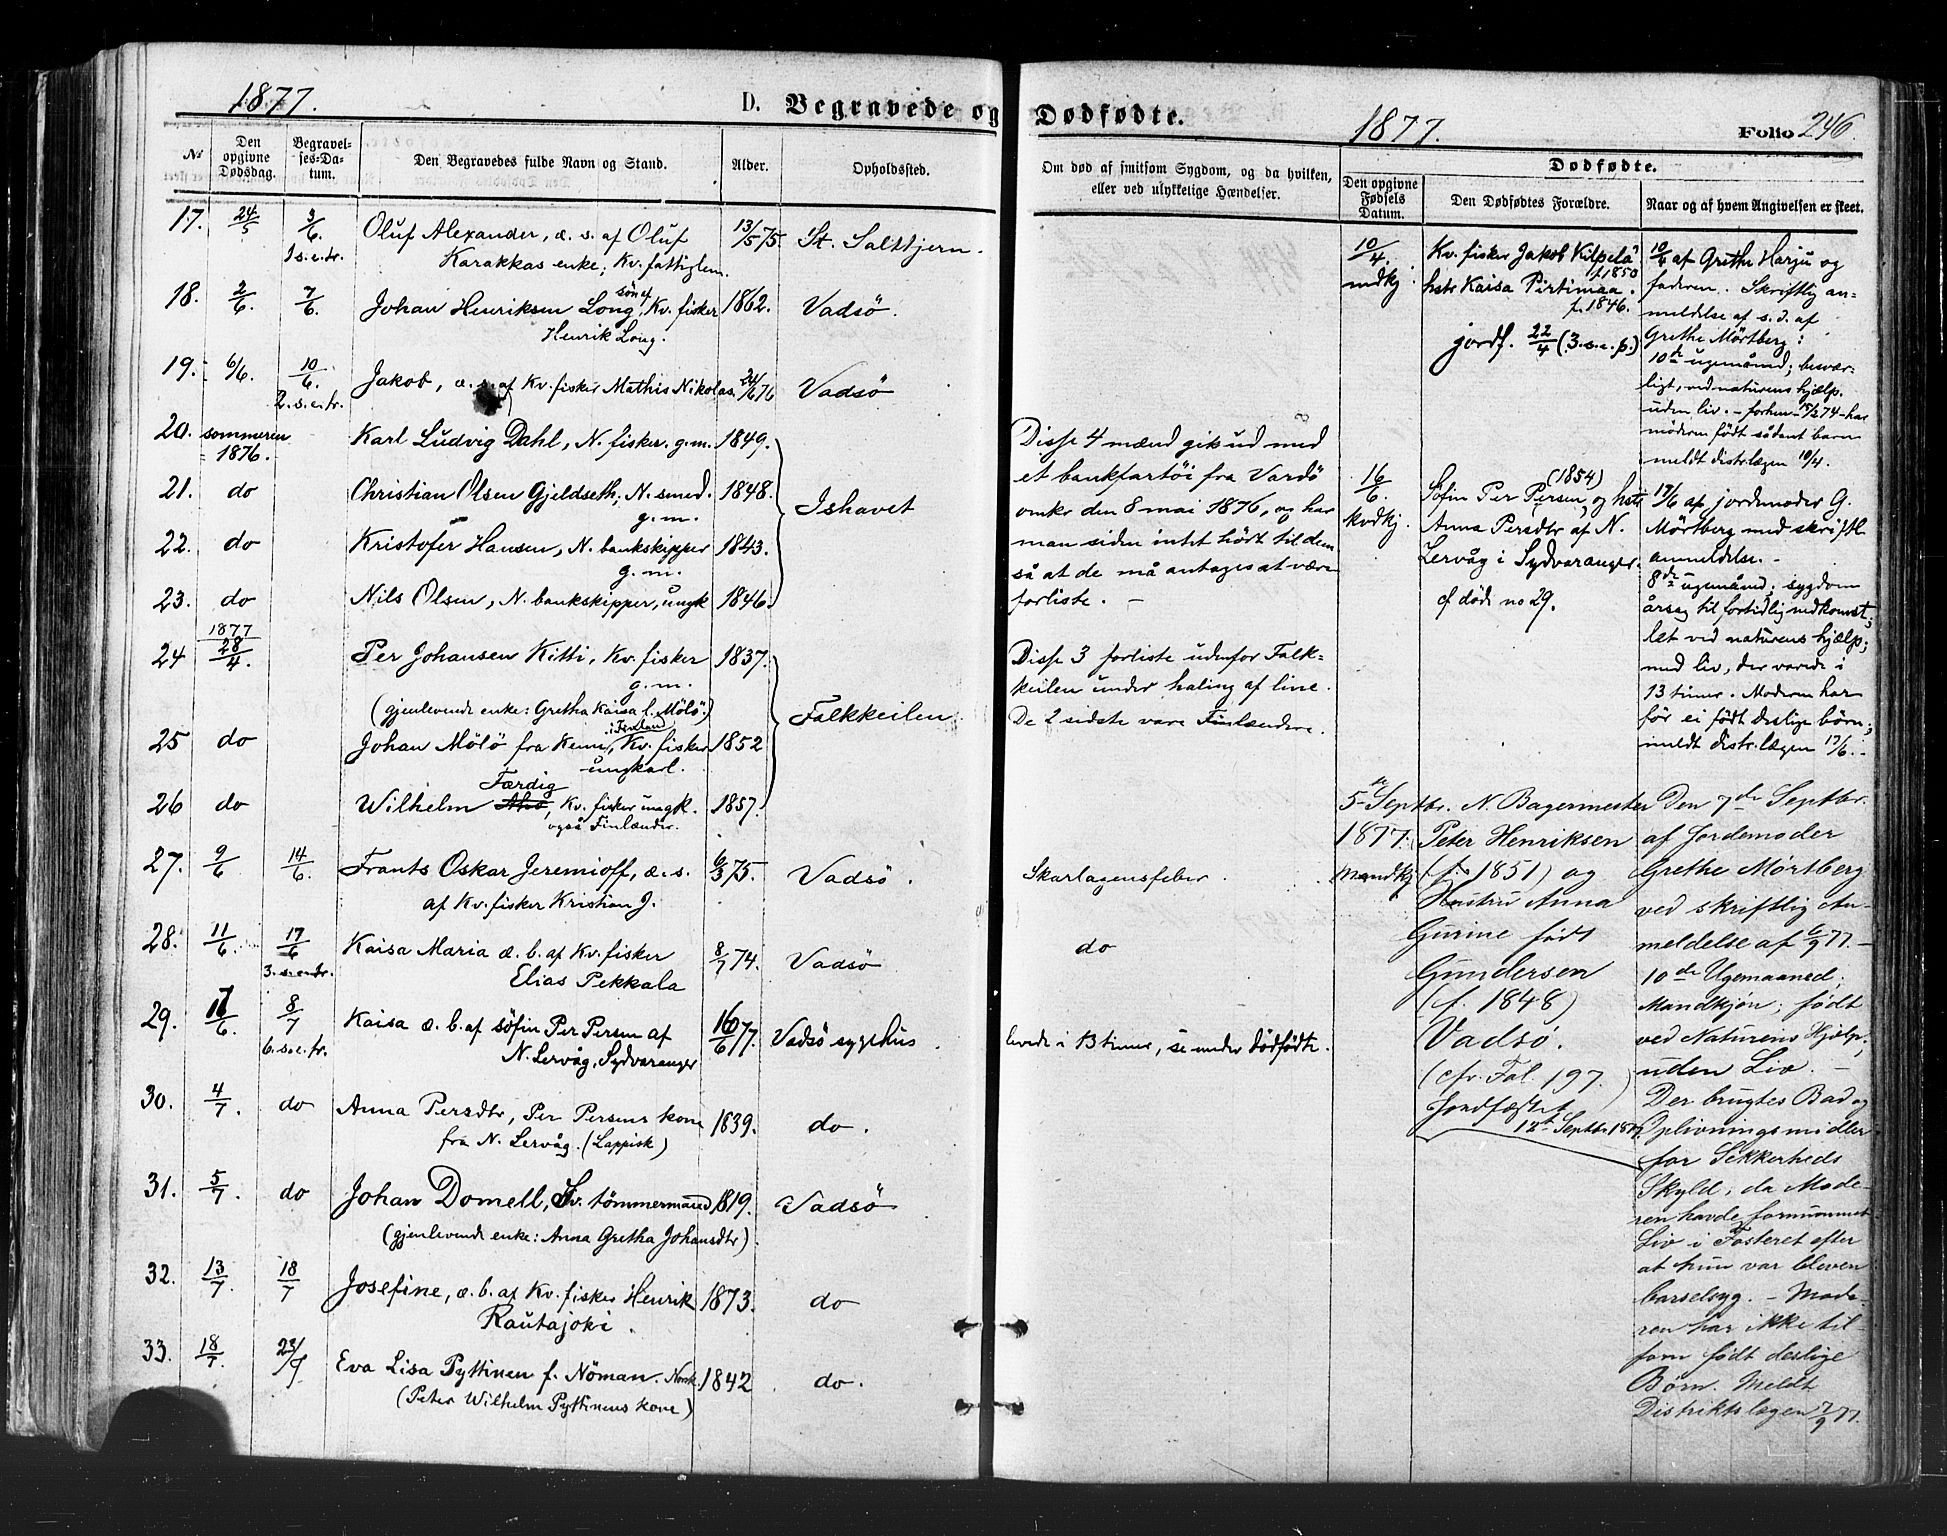 1877.
D. Begravede og Dødfødte.
1877.
Folio 246.
№
Den opgivne Dødsdag.
Begravelses-Datum.
Den Begravedes fulde Navn og Stand.
Alder.
Opholdssted.
Om død af smitsom Sygdom, og da hvilken,
eller ved ulykkelige Hændelser.
Dødfødte.
Den opgivne Fødsels Datum.
Den Dødfødtes Forældre.
Naar og af hvem Angivelsen er skeet.
17. 24/5 3/6. Oluf Alexander, æ. s. af Oluf 13/5 75. St. Saltbjern.
1 s. e. tr. Karakkas enke; Kv. fattiglem.
18. 2/6. 7/6. Johan Henriksen Long, søn af Kv. fisker 1862. Vadsö.
Henrik Long.
19. 6/6. 10/6. Jakob, æ. s. af Kv. fisker Mathis Nikolas. 24/6 76 Vadsö
2. s. e. tr.
20. sommeren Karl Ludvig Dahl, N. fisker. g. m. 1849.
1876.
21. do Christian Olsen Gjeldseth, N. smed. 1848. Ishavet
g. m.
22. do Kristofer Hansen, N. bankskipper 1843.
g. m.
23. do Nils Olsen, N. bankskipper, ungk 1846.
1877
24 28/4. Per Johansen Kitti, Kv. fisker 1837.
g. m.
(gjenlevende enke: Gretha Kaisa f. Mölö.) Falkkeilen
i Finland
25 do Johan Mölö fra Kemi, Kv. fisker 1852
ungkarl.
Færdig
26 do Wilhelm Kv. fisker ungk. 1857.
også Finlænder.
27. 9/6 14/6. Frants Oskar Jeremioff, æ. s. 6/3 75. Vadsö.
af Kv. fisker Kristian J.
28. 11/6. 17/6 Kaisa Maria æ. b. af Kv. fisker 8/7 74. Vadsö
3. s. e. tr. Elias Pekkala
29. 17/6. 8/7 Kaisa æ. b. af söfin Per Persen af 16/6 77. Vadsö sygehus.
6. s. e. tr. N. Lervåg, Sydvaranger
30. 4/7. do Anna Persdtr, Per Persens kone 1839. do.
fra N. Lervåg. (Lappisk)
31. 5/7. do Johan Domell, Sv. tömmermand 1819. Vadsö
(gjenlevende enke: Anna Gretha Johansdtr)
32. 13/7. 18/7 Josefine, æ. b. af Kv. fisker Henrik 1873. do
Rautajoki.
33. 18/7. Eva Lisa Pyttinen f. Nöman. Norsk. 1842 do.
(Peter Wilhelm Pyttinens kone)
Disse 4 mænd gik ud med
et bankfartöi fra Vardö
omkr den 8 mai 1876, og har
man siden intet hört til dem
så at de må antages at være
forliste. –
Disse 3 forliste udenfor Falk=
keilen under haling af line.
De 2 sidste vare Finlændere.
Skarlagensfeber.
do
levede i 13 timer, se under dödfödte.
10/4.
mdkj
Kv. fisker Jakob Kilpelä
f. 1850
hstr Kaisa Pirtimaa.
f. 1846.
jordf. 22/4 (3. s. e. p.)
10/4 af Grethe Harju og
faderen. Skriftlig an=
meldelse af s. d. af
Grethe Mörtberg:
10de ugemånd; besvær-
ligt, ved naturens hjælp.
uden liv. – forhen 74 har
moderen födt sådant barn
meldt distr.lægen 10/4.
16/6.
kvdkj.
(1854)
Söfin Per Persen, og hstr
Anna Persdtr af N.
Lervåg i Sydvaranger.
cf döde no 29.
17/6 af jordmoder G.
Mörtberg med skriftl
anmeldelse. –
8de ugemånd; sygdom
årsag til fortidlig nedkomst;
let ved naturens hjælp;
med liv, der varede i
13 timer. Moderen har
för ei födt deslige börn;
meldt distr.lægen 17/6. –
5te Septbr.
1877.
Mandkj
N. Bagermester
Peter Henriksen
(f. 1851) og
Hustru Anna
Gurine født
Gundersen
(f. 1848)
Vadsø.
(cfr. Fol. 197.)
Jordfæstet
12te Septbr 1877
Den 7de Septbr.
af Jordemoder
Grethe Mörtberg
ved skriftlig An-
meldelse af 6/9 77. –
10de Ugemaaned;
Mandkjøn; født
ved Naturens Hjælp,
uden Liv. –
Der brugtes Bad og
Oplivningsmidler
for Sikkerheds
Skyld, da Mode-
ren havde fornummet
Liv i Fosteret efter
at hun var bleven
barselsyg. – Mode-
ren har ikke til-
forn født deslige
Børn. Meldt
Distriktslægen 7/9 77.